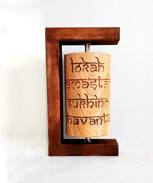 lokah
amast
sukhino
havantu